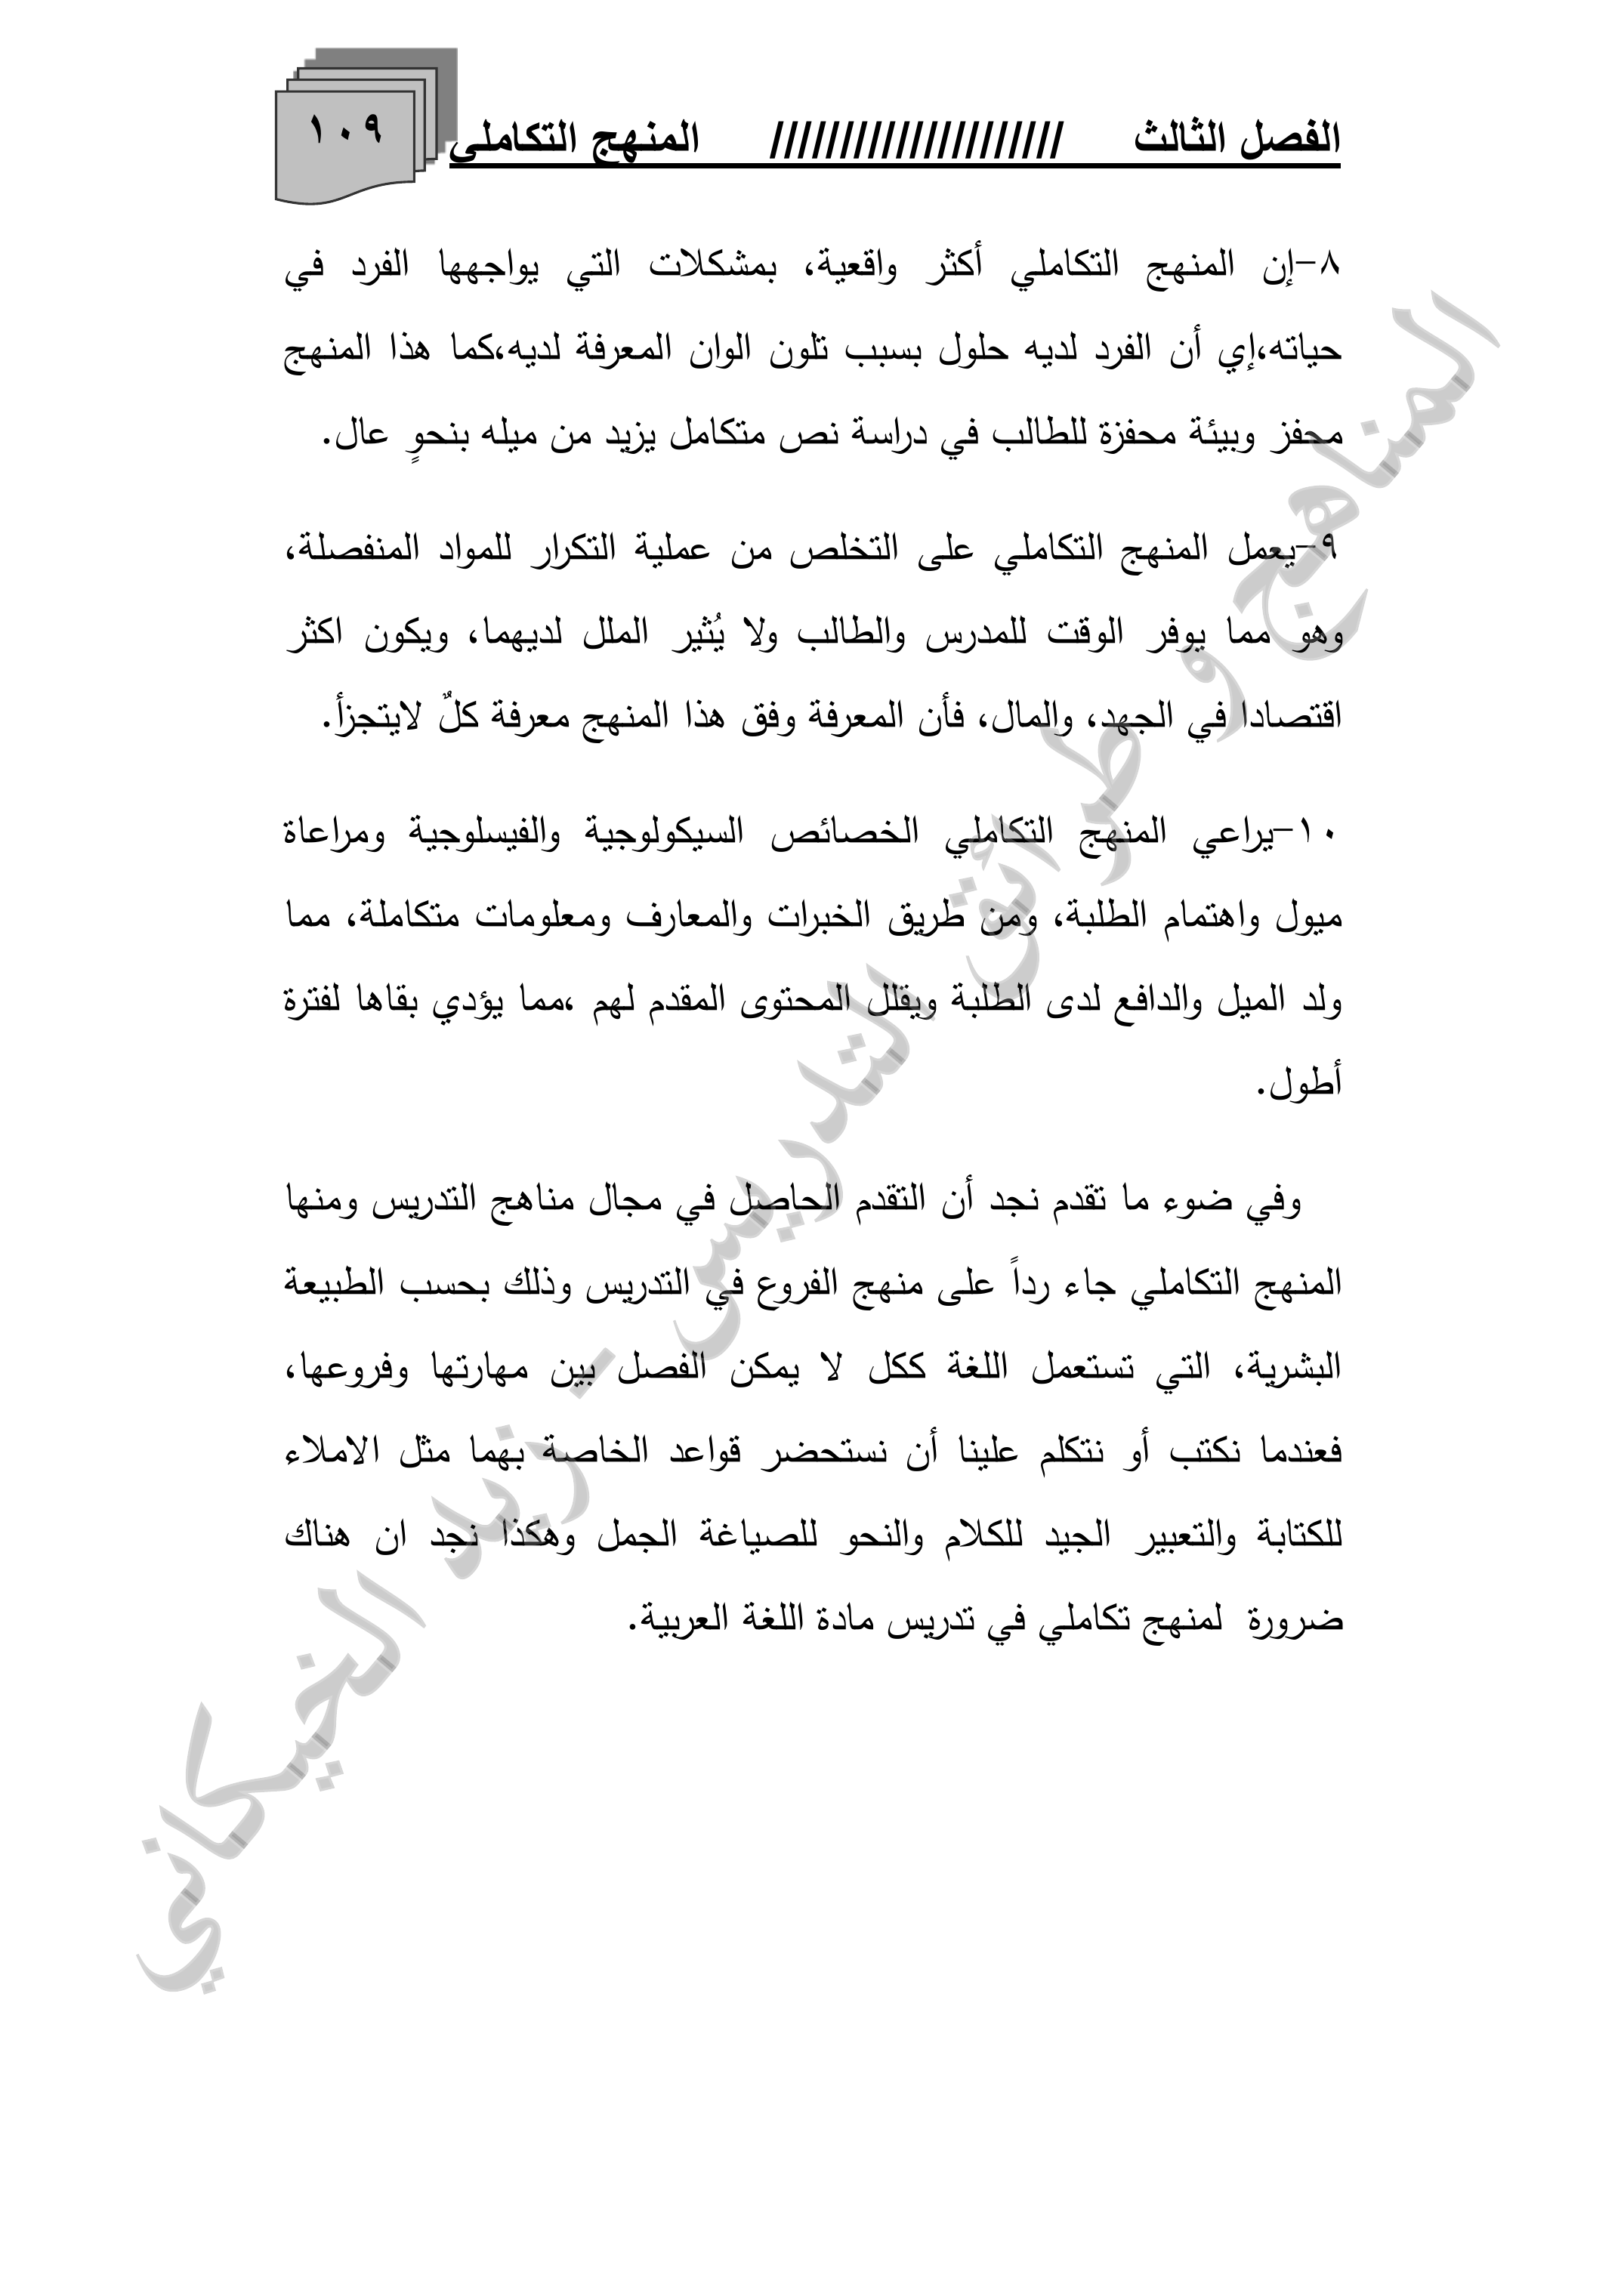 الفصل الثالث ///////////////////// المنهج التكاملي
١٠٩
٨-إن المنهج التكاملي أكثر واقعية، بمشكلات التي يواجهها الفرد في
حياته،إي أن الفرد لديه حلول بسبب تلون الوان المعرفة لديه،كما هذا المنهج
محفز وبيئة محفزة للطالب في دراسة نص متكامل يزيد من ميله بنحوٍ عال.
٩-يعمل المنهج التكاملي على التخلص من عملية التكرار للمواد المنفصلة،
وهو مما يوفر الوقت للمدرس والطالب ولا يُثير الملل لديهما، ويكون اكثر
اقتصادا في الجهد، والمال، فأن المعرفة وفق هذا المنهج معرفة كلٌ لايتجزأ.
١٠-يراعي المنهج التكاملي الخصائص السيكولوجية والفيسلوجية ومراعاة
ميول واهتمام الطلبة، ومن طريق الخبرات والمعارف ومعلومات متكاملة، مما
ولد الميل والدافع لدى الطلبة ويقلل المحتوى المقدم لهم ،مما يؤدي بقاها لفترة
أطول.
وفي ضوء ما تقدم نجد أن التقدم الحاصل في مجال مناهج التدريس ومنها
المنهج التكاملي جاء رداً على منهج الفروع في التدريس وذلك بحسب الطبيعة
البشرية، التي تستعمل اللغة ككل لا يمكن الفصل بين مهارتها وفروعها،
فعندما نكتب أو نتكلم علينا أن نستحضر قواعد الخاصة بهما مثل الاملاء
للكتابة والتعبير الجيد للكلام والنحو للصياغة الجمل وهكذا نجد ان هناك
ضرورة لمنهج تكاملي في تدريس مادة اللغة العربية.
المناهج و طرائق التدريس - زيد الخيكاني